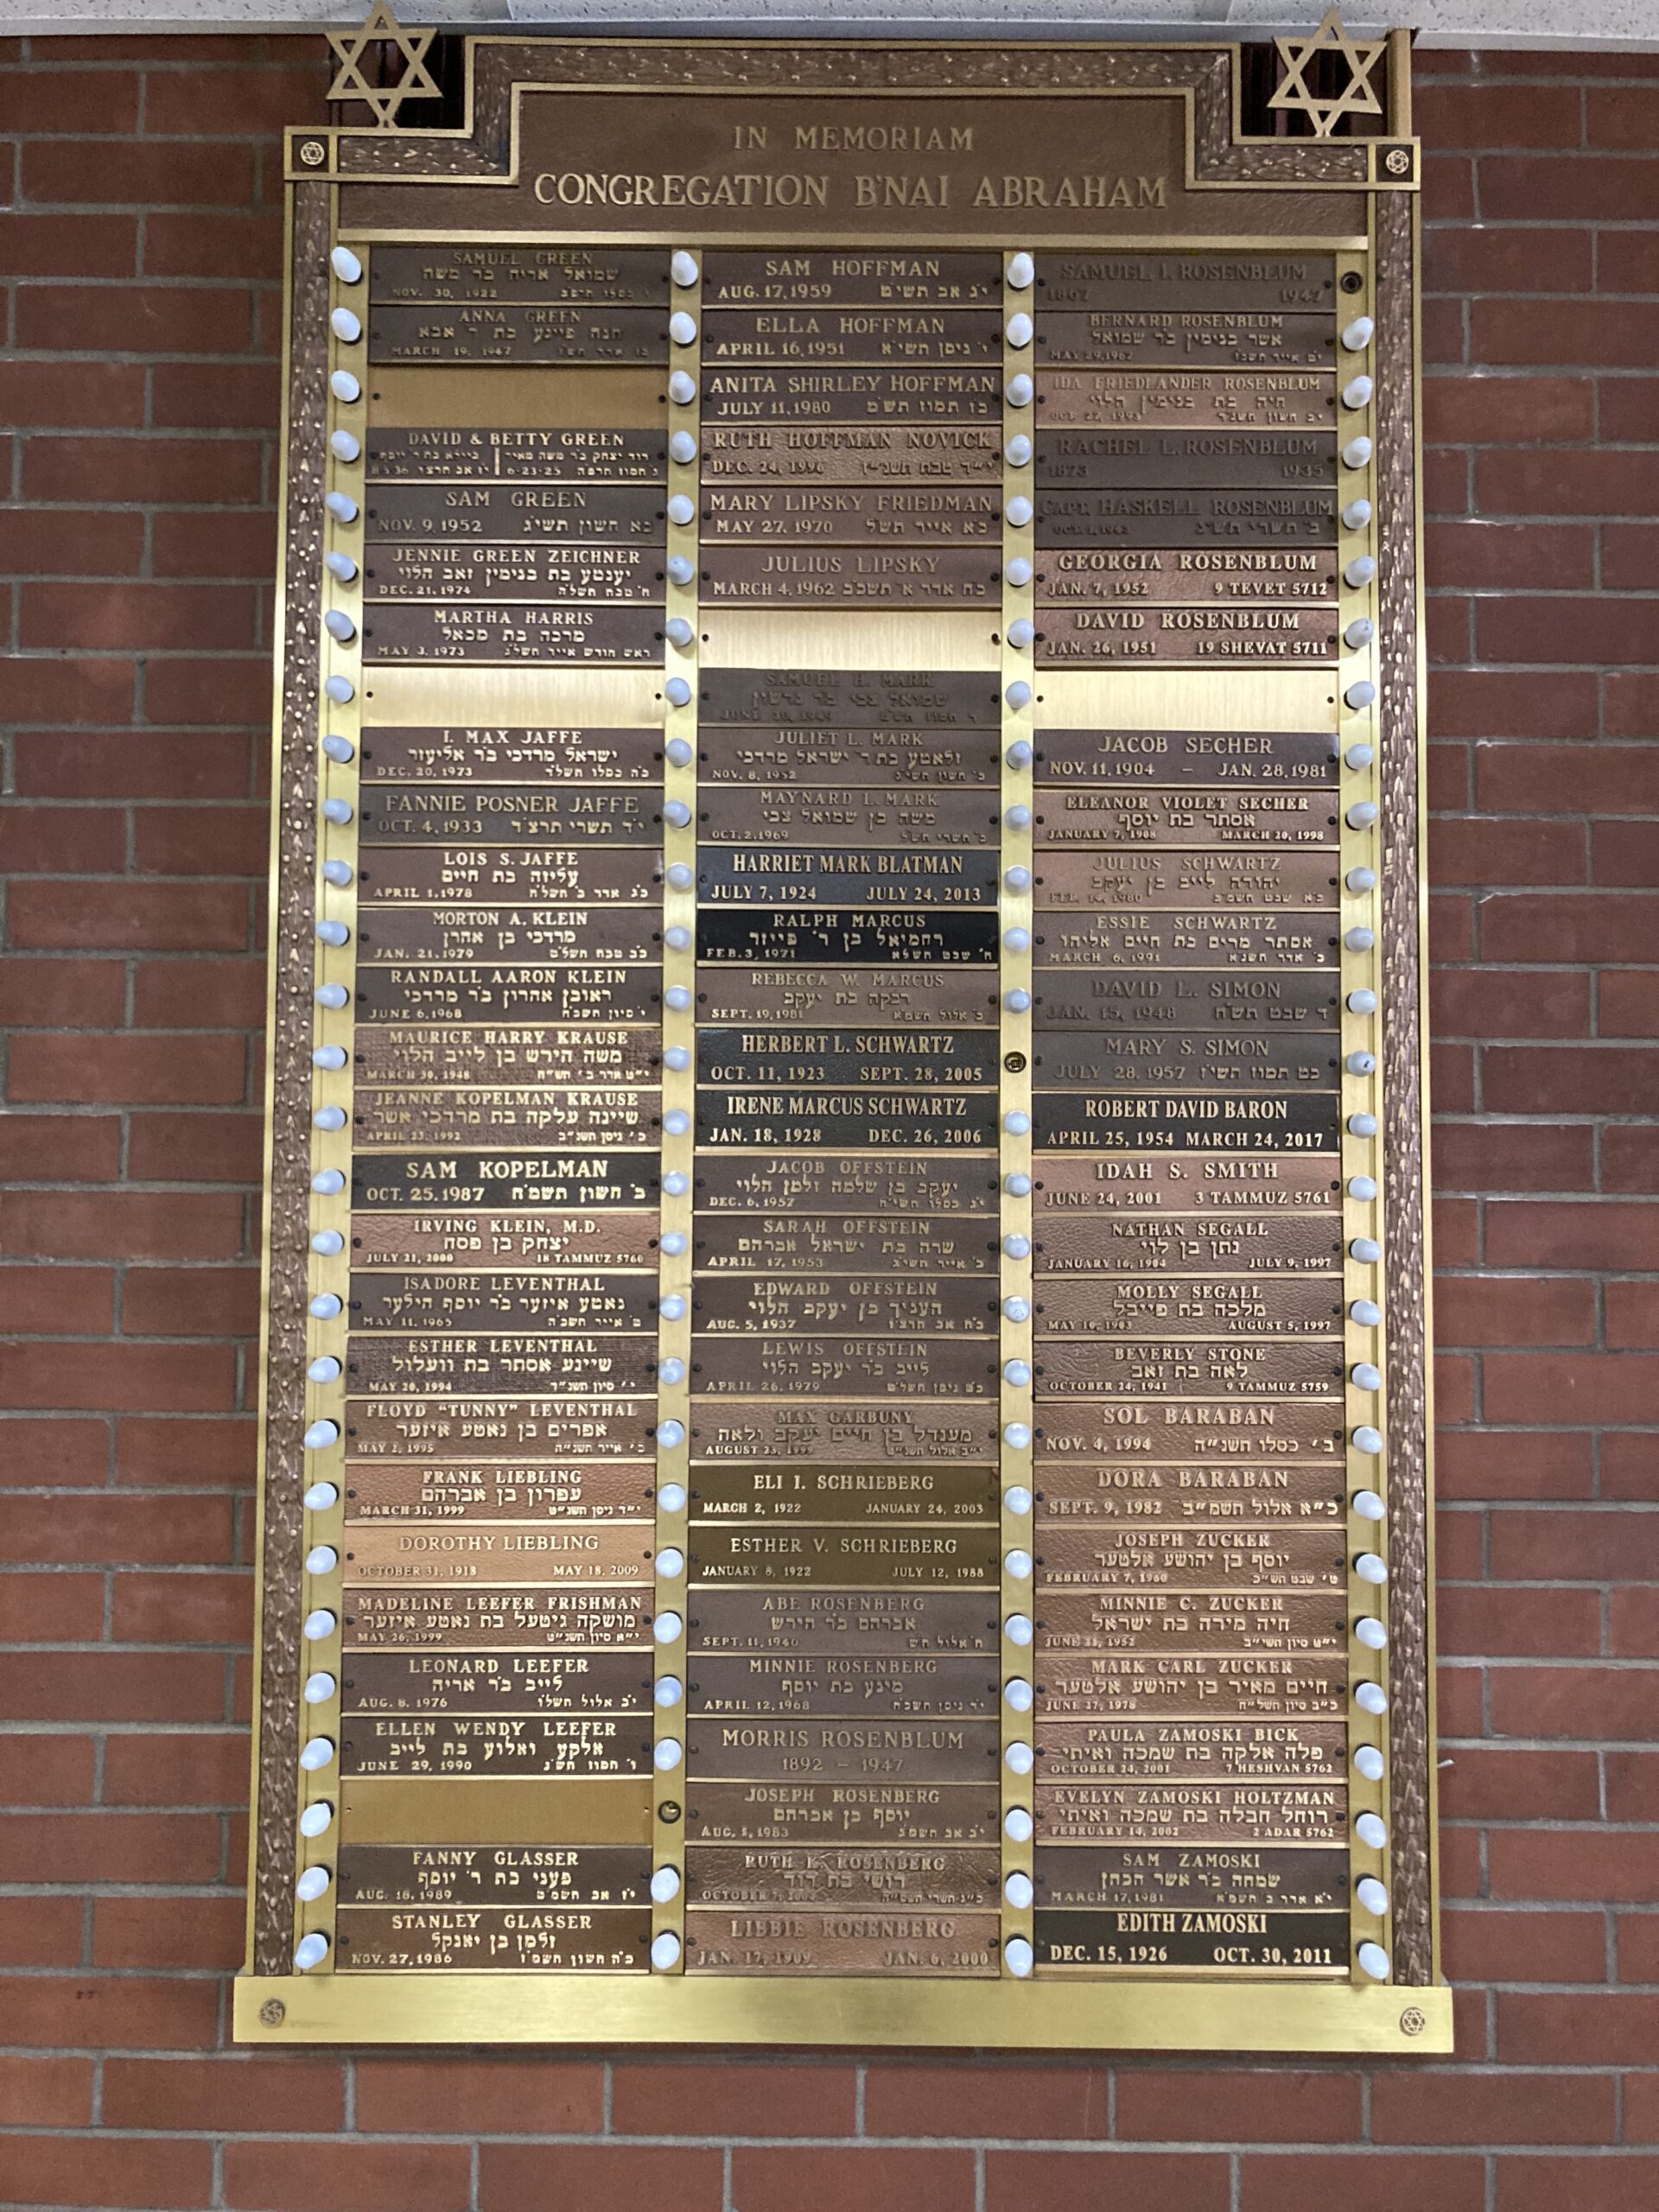 IN MEMORIAM
CONGREGATION B'NAI ABRAHAM
SAMUEL GREEN
שמואל אריה בר משה
NOV. 30, 1922
ANNA GREEN
חנה פייגע בת ר' אבא
MARCH 19, 1947
DAVID & BETTY GREEN
דוד יצחק בר משה מאיר
6-23-25
SAM GREEN
NOV. 9, 1952 כא חשון תשי'ג
JENNIE GREEN ZEICHNER
יענטע בת בנימין זאב הלוי
DEC. 21, 1974 ח' טבת תשל'ה
MARTHA HARRIS
מרכה בת מכאל
MAY 3, 1973 ראש חודש אייר תשל'ג
I. MAX JAFFE
ישראל מרדכי בר אליעזר
DEC. 20, 1973 כ'ה כסלו תשל'ד
FANNIE POSNER JAFFE
OCT. 4, 1933 י'ד תשרי תרצ'ד
LOIS S. JAFFE
עליזה בת חיים
APRIL 1, 1978 כ'ג אדר ב' תשל'ח
MORTON A. KLEIN
מרדכי בן אהרן
JAN. 21, 1979 כ'ב טבת תשל'ט
RANDALL AARON KLEIN
ראובן אהרון בר מרדכי
JUNE 6, 1968 י' סיון תשכ'ח
MAURICE HARRY KRAUSE
משה הירש בן לייב הלוי
MARCH 30, 1948 י"ט אדר ב' תש"ח
JEANNE KOPELMAN KRAUSE
שיינה עלקה בת מרדכי אשר
APRIL 23, 1992 כ' ניסן תשנ"ב
SAM KOPELMAN
OCT. 25, 1987 ב' חשון תשמ'ח
IRVING KLEIN, M.D.
יצחק בן פסח
JULY 21, 2000 18 TAMMUZ 5760
ISADORE LEVENTHAL
נאטע איזער בר יוסף הילער
MAY 11, 1965 ט' אייר תשכ'ה
ESTHER LEVENTHAL
שיינע אסתר בת וועלול
MAY 20, 1994 י' סיון תשנ"ד
FLOYD "TUNNY" LEVENTHAL
אפרים בן נאטע איזער
MAY 2, 1995 ב' אייר תשנ"ה
FRANK LIEBLING
עפרון בן אברהם
MARCH 31, 1999 י"ד ניסן תשנ"ט
DOROTHY LIEBLING
OCTOBER 31, 1918 MAY 18, 2009
MADELINE LEEFER FRISHMAN
מושקה גיטעל בת נאטע איזער
MAY 26, 1999 י"א סיון תשנ"ט
LEONARD LEEFER
לייב בר אריה
AUG. 8, 1976 י'ב אלול תשל'ו
ELLEN WENDY LEEFER
אלקע ואלוע בת לייב
JUNE 29, 1990 ו' תמוז תש'נ
FANNY GLASSER
פעני בת ר' יוסף
AUG. 18, 1989 י'ז אב תשמ'ט
STANLEY GLASSER
זלמן בן יאנקל
NOV. 27, 1986 כ'ה חשון תשמ'ז
SAM HOFFMAN
AUG. 17, 1959 י'ג אב תשי'ט
ELLA HOFFMAN
APRIL 16, 1951 י' ניסן תשי'א
ANITA SHIRLEY HOFFMAN
JULY 11, 1980 כז תמוז תש'מ
RUTH HOFFMAN NOVICK
DEC. 24, 1996 י"ד טבת תשנ"ז
MARY LIPSKY FRIEDMAN
MAY 27, 1970 כא אייר תש'ל
JULIUS LIPSKY
MARCH 4, 1962 כח אדר א' תשכב
SAMUEL H. MARK
שמואל צבי בר גרשון
JULIET L. MARK
זלאטע בת ר' ישראל מרדכי
NOV. 8, 1952 כ' חשון תשי'ג
MAYNARD L. MARK
משה בן שמואל צבי
OCT. 2, 1969 כ' תשרי תש'ל
HARRIET MARK BLATMAN
JULY 7, 1924 JULY 24, 2013
RALPH MARCUS
רחמיאל בן ר' פייזר
FEB. 3, 1971 ח' שבט תשלא
REBECCA W. MARCUS
רבקה בת יעקב
SEPT. 19, 1981 כ' אלול תשמא
HERBERT L. SCHWARTZ
OCT. 11, 1923 SEPT. 28, 2005
IRENE MARCUS SCHWARTZ
JAN. 18, 1928 DEC. 26, 2006
JACOB OFFSTEIN
יעקב בן שלמה זלמן הלוי
DEC. 6, 1957 י'ג כסלו תשי'ח
SARAH OFFSTEIN
שרה בת ישראל אברהם
APRIL 17, 1953 ב' אייר תשי'ג
EDWARD OFFSTEIN
העניך בן יעקב הלוי
AUG. 5, 1937 כ'ח אב תרצ'ז
LEWIS OFFSTEIN
לייב בר יעקב הלוי
APRIL 26, 1979 כ'ט ניסן תשל'ט
MAX GARBUNY
מענדל בן חיים יעקב ולאה
AUGUST 23, 1999 י"ב אלול תשנ"ט
ELI I. SCHRIEBERG
MARCH 2, 1922 JANUARY 24, 2003
ESTHER V. SCHRIEBERG
JANUARY 8, 1922 JULY 12, 1988
ABE ROSENBERG
אברהם בר הירש
SEPT. 11, 1940 ח' אלול ת'ש
MINNIE ROSENBERG
מינע בת יוסף
APRIL 12, 1968 י'ד ניסן תשכ'ח
MORRIS ROSENBLUM
1892 – 1947
JOSEPH ROSENBERG
יוסף בן אברהם
AUG. 1, 1983 י'ב אב תשמ'ג
RUTH K. ROSENBERG
רושי בת דוד
OCTOBER 7,
LIBBIE ROSENBERG
JAN. 17, 1909 JAN. 6, 2000
SAMUEL I. ROSENBLUM
1867 1947
BERNARD ROSENBLUM
אשר בנימין בר שמואל
MAY 29, 1962
IDA FRIEDLANDER ROSENBLUM
חיה בת בנימין הלוי
OCT. 27, 1993 יב חשון תשנ"ד
RACHEL L. ROSENBLUM
1873 1935
CAPT. HASKELL ROSENBLUM
ב' תשרי תש'ג
GEORGIA ROSENBLUM
JAN. 7, 1952 9 TEVET 5712
DAVID ROSENBLUM
JAN. 26, 1951 19 SHEVAT 5711
JACOB SECHER
NOV. 11, 1904 – JAN. 28, 1981
ELEANOR VIOLET SECHER
אסתר בת יוסף
JANUARY 7, 1908 MARCH 20, 1998
JULIUS SCHWARTZ
יהודה לייב בן יעקב
ESSIE SCHWARTZ
אסתר מרים בת חיים אליהו
MARCH 6, 1991 כ' אדר תשנ'א
DAVID L. SIMON
JAN. 15, 1948 ד שבט תש'ח
MARY S. SIMON
JULY 28, 1957 כט תמוז תשי'ז
ROBERT DAVID BARON
APRIL 25, 1954 MARCH 24, 2017
IDAH S. SMITH
JUNE 24, 2001 3 TAMMUZ 5761
NATHAN SEGALL
נתן בן לוי
JANUARY 16, 1904 JULY 9, 1997
MOLLY SEGALL
מלכה בת פייבל
MAY 10, 1903 AUGUST 5, 1997
BEVERLY STONE
לאה בת זאב
OCTOBER 24, 1941 9 TAMMUZ 5759
SOL BARABAN
NOV. 4, 1994 ב' כסלו תשנ"ה
DORA BARABAN
SEPT. 9, 1982 כ"א אלול תשמ"ב
JOSEPH ZUCKER
יוסף בן יהושע אלטער
FEBRUARY 7, 1960 ט' שבט תש"כ
MINNIE C. ZUCKER
חיה מירה בת ישראל
י"ט סיון תשי"ב
MARK CARL ZUCKER
חיים מאיר בן יהושע אלטער
JUNE 27, 1978 כ"ב סיון תשל"ח
PAULA ZAMOSKI BICK
פלה אלקה בת שמכה ואיתי
OCTOBER 24, 2001 7 HESHVAN 5762
EVELYN ZAMOSKI HOLTZMAN
רוחל חבלה בת שמכה ואיתי
FEBRUARY 14, 2002 2 ADAR 5762
SAM ZAMOSKI
שמחה בר אשר הכהן
MARCH 17, 1981 י'א אדר ב תשמ'א
EDITH ZAMOSKI
DEC. 15, 1926 OCT. 30, 2011